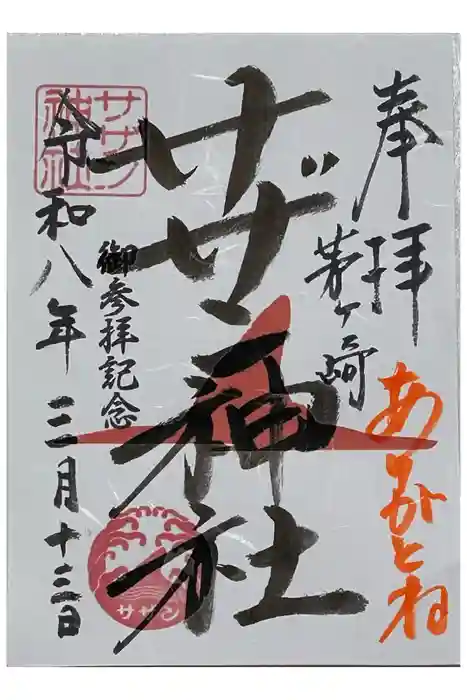 奉拝
茅ヶ崎
ありがとね
サザン神社
御参拝記念
サザン
令和八年三月十三日
サザン
神社